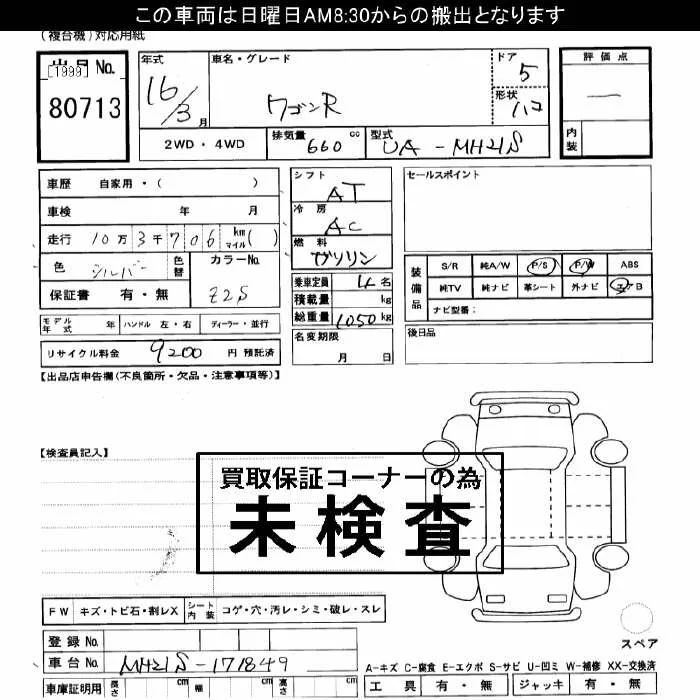 この車両は日曜日AM8:30からの搬出となります
(複合機)対応用紙
出品No.
[1999]
80713
年式
16/3月
車名・グレード
ワゴンR
ドア
5
形状
ハコ
評価点
—
内装
2WD・4WD
排気量 660 cc
型式 UA-MH21S
車歴 自家用・( )
車検 年 月
走行 10万3千706 km マイル( )
色 シルバー
色替
カラーNo.
Z2S
保証書 有・無
モデル年式 年 ハンドル 左・右 ディーラー・並行
リサイクル料金 9200 円 預託済
シフト
AT
冷房
AC
燃料
ガソリン
乗車定員 4名
積載量 kg
総重量 1050 kg
名変期限
月 日
セールスポイント
装備品
S/R 純A/W P/S P/W ABS
純TV 純ナビ 革シート 外ナビ エアB
ナビ型番:
後日品
【出品店申告欄(不良箇所・欠品・注意事項等)】
【検査員記入】
買取保証コーナーの為
未検査
FW キズ・トビ石・割レX シート内装 コゲ・穴・汚レ・シミ・破レ・スレ
登録No.
車台No. MH21S-171849
車庫証明用 長さ cm 幅 cm 高さ cm
スペア
A-キズ C-腐食 E-エクボ S-サビ U-凹ミ W-補修 XX-交換済
工具 有・無 ジャッキ 有・無